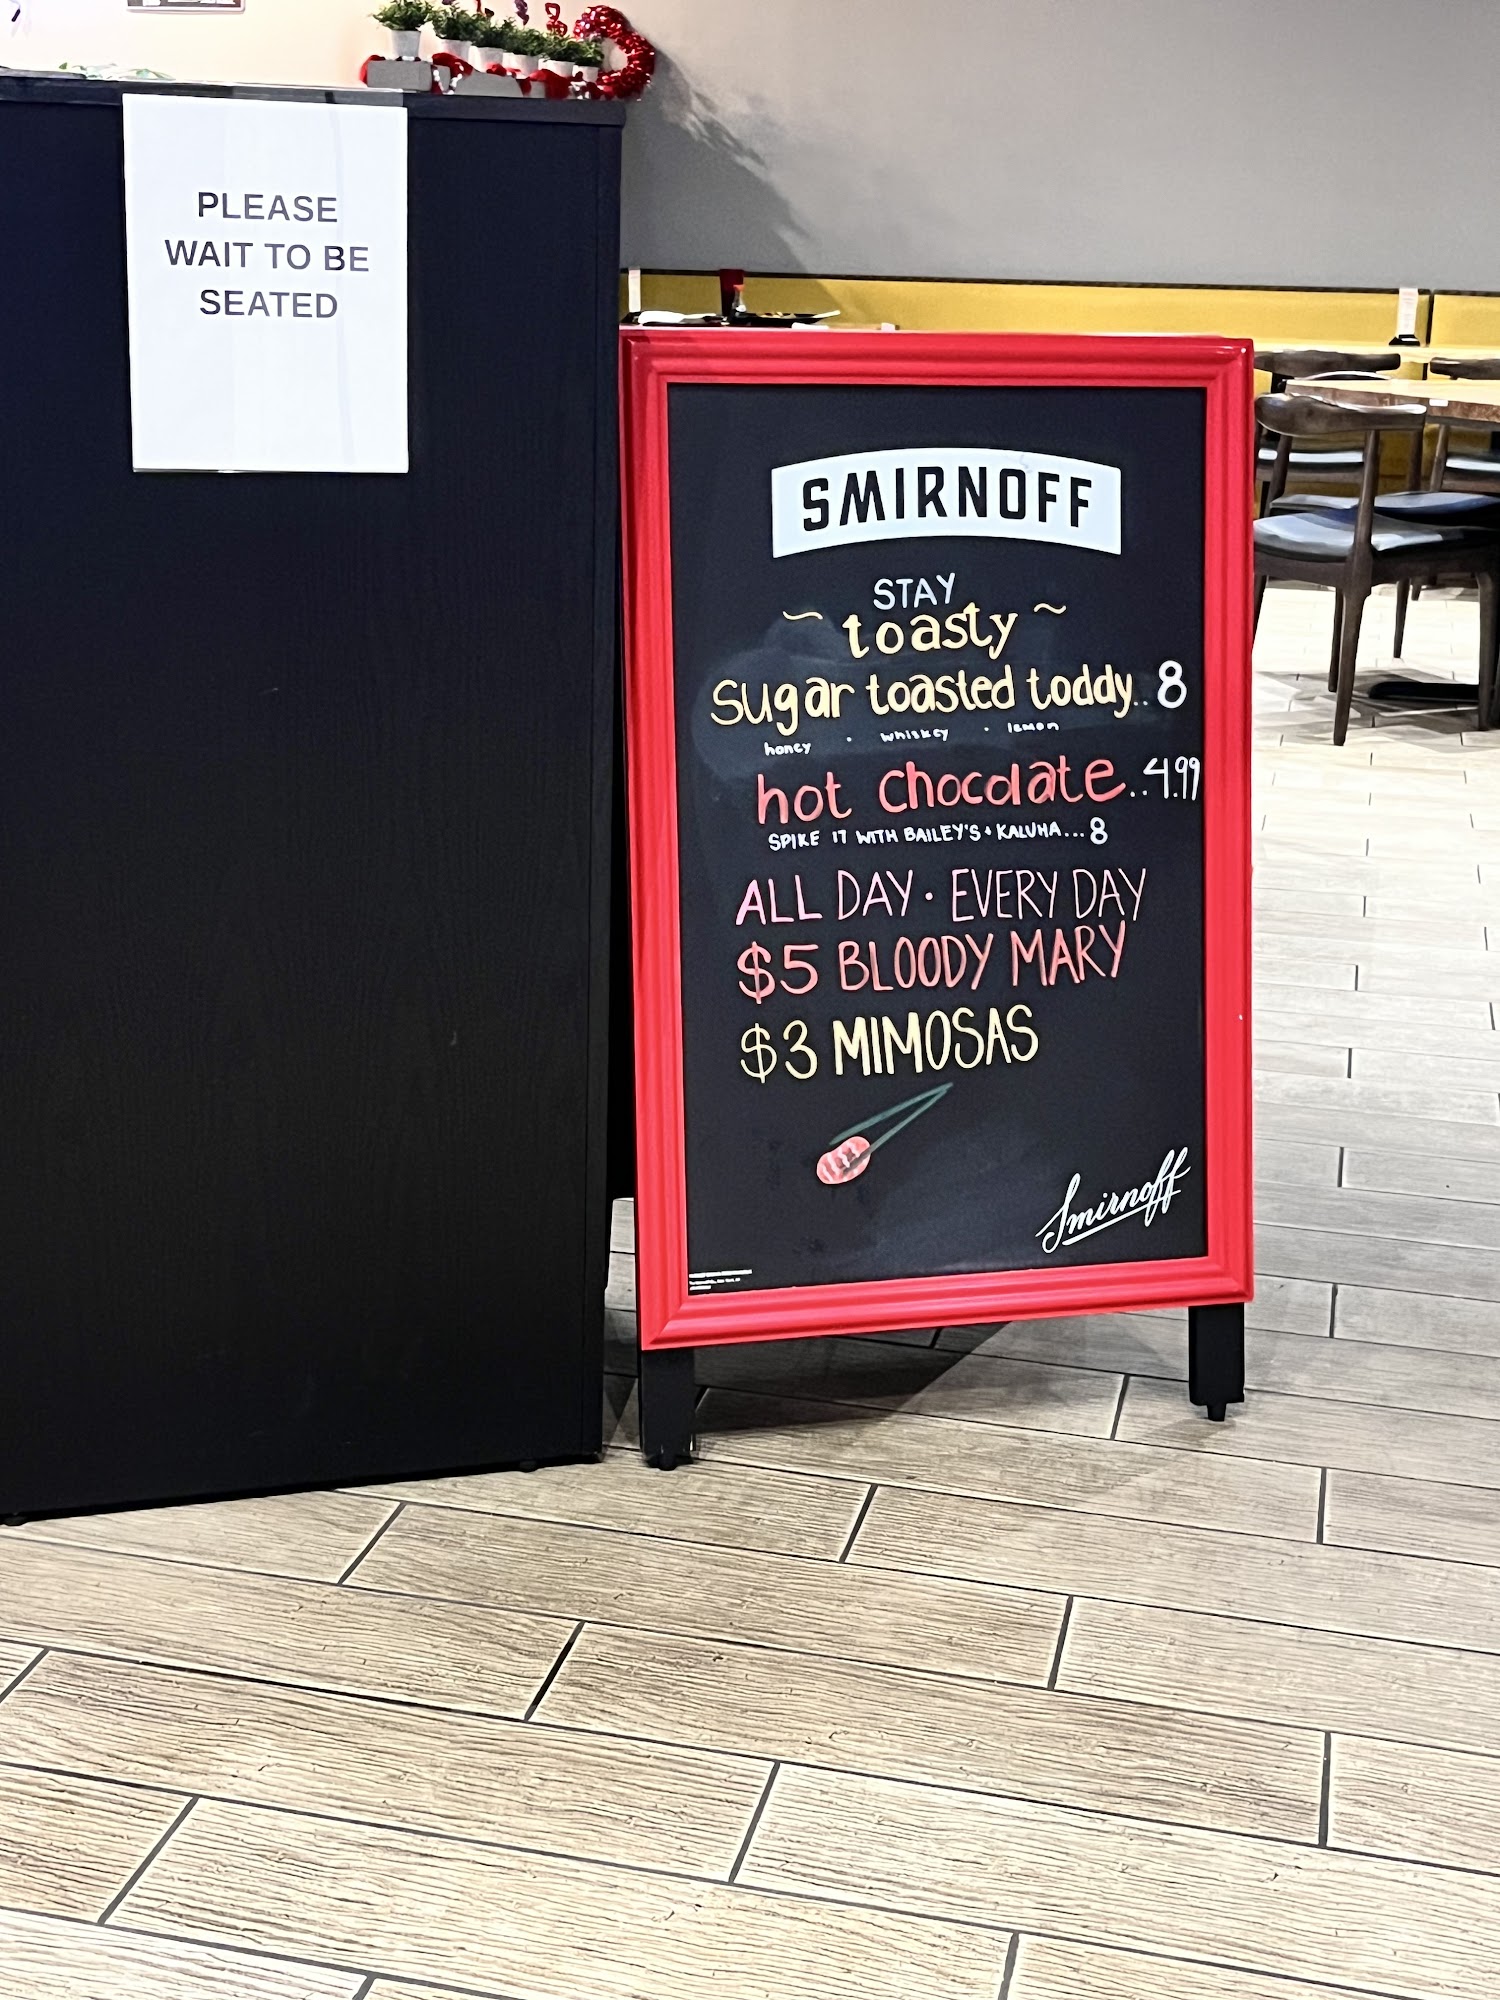 PLEASE
WAIT TO BE
SEATED
SMIRNOFF
STAY
~ toasty ~
sugar toasted toddy..8
honey · whiskey · lemon
hot chocolate..4.99
SPIKE IT WITH BAILEY'S + KALUHA...8
ALL DAY · EVERY DAY
$5 BLOODY MARY
$3 MIMOSAS
Smirnoff